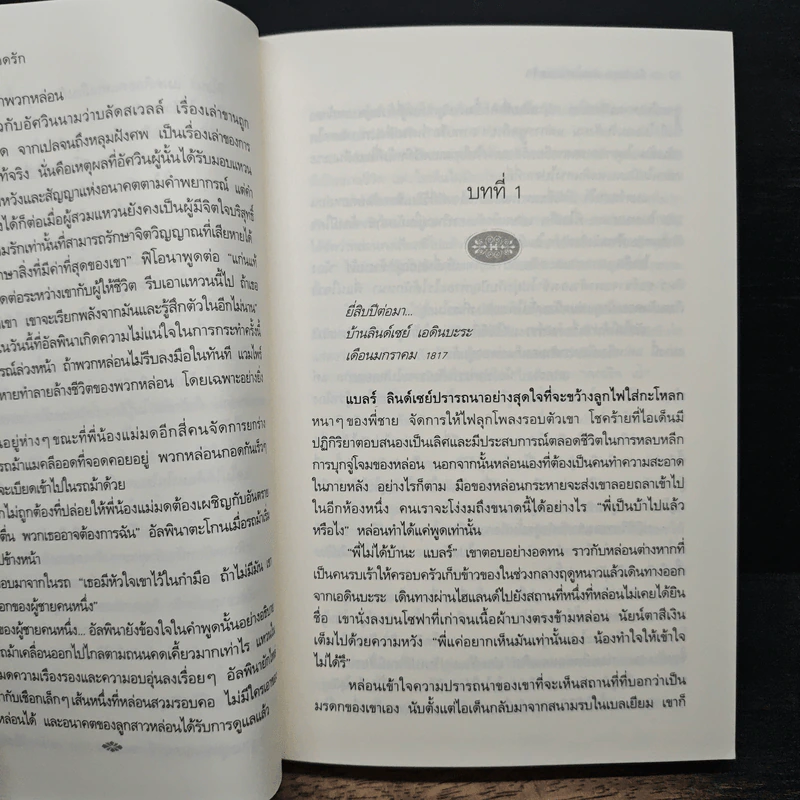 ดรัก
าพวกหล่อน
วกับอัศวินนามว่าบลัดสเวลล์ เรื่องเล่าขานถูก
ด จากเปลจนถึงหลุมฝังศพ เป็นเรื่องเล่าของการ
ท้จริง นั่นคือเหตุผลที่อัศวินผู้นั้นได้รับมอบแหวน
หวังและสัญญาแห่งอนาคตตามคำพยากรณ์ แต่คำ
งได้ก็ต่อเมื่อผู้สวมแหวนยังคงเป็นผู้มีจิตใจบริสุทธิ์
มรักเท่านั้นที่สามารถรักษาจิตวิญญาณที่เสียหายได้
ษาสิ่งที่มีค่าที่สุดของเขา" ฟิโอนาพูดต่อ "แก่นแท้
ดต่อระหว่างเขากับผู้ให้ชีวิต รีบเอาแหวนนี้ไป ถ้าเธอ
เขา เขาจะเรียกพลังจากมันและรู้สึกตัวในอีกไม่นาน"
ในวันนี้ที่อัลพินาเกิดความไม่แน่ใจในการกระทำครั้งนี้
รณ์ล่วงหน้า ถ้าพวกหล่อนไม่รีบลงมือในทันที แวมไพร์
หายทำลายล้างชีวิตของพวกหล่อน โดยเฉพาะอย่างยิ่ง
นอยู่ห่างๆ ขณะที่พี่น้องแม่มดอีกสี่คนจัดการยกร่าง
รถม้าแมคลีออดที่จอดคอยอยู่ พวกหล่อนกอดกันเร็วๆ
จะเบียดเข้าไปในรถม้าด้วย
กไม่ถูกต้องที่ปล่อยให้พี่น้องแม่มดต้องเผชิญกับอันตราย
ตื่น พวกเธออาจต้องการฉัน" อัลพินาตะโกนเมื่อรถม้าเริ่ม
ปข้างหน้า
อบมาจากในรถ "เธอมีหัวใจเขาไว้ในกำมือ ถ้าไม่มีมัน เขา
อกของผู้ชายคนหนึ่ง"
ของผู้ชายคนหนึ่ง... อัลพินายังข้องใจในคำพูดนั้นอย่างอธิบาย
รถม้าเคลื่อนออกไปไกลตามถนนคดเคี้ยวมากเท่าไร แหวนใน
มดความเรืองรองและความอบอุ่นลงเรื่อยๆ อัลพินา
ากับเชือกเล็กๆ เส้นหนึ่งที่หล่อนสวมรอบคอ ไม่มีใคร
หล่อนได้ และอนาคตของลูกสาวหล่อนได้รับการดูแลแล้ว
บทที่ 1
ยี่สิบปีต่อมา...
บ้านลินด์เซย์ เอดินบะระ
เดือนมกราคม 1817
แบลร์ ลินด์เซย์ปรารถนาอย่างสุดใจที่จะขว้างลูกไฟใส่กะโหลก
หนาๆ ของพี่ชาย จัดการให้ไฟลุกโพลงรอบตัวเขา โชคร้ายที่ไอเด็นมี
ปฏิกิริยาตอบสนองเป็นเลิศและมีประสบการณ์ตลอดชีวิตในการหลบหลีก
การบุกจู่โจมของหล่อน นอกจากนั้นหล่อนเองที่ต้องเป็นคนทำความสะอาด
ในภายหลัง อย่างไรก็ตาม มือของหล่อนกระหายจะส่งเขาลอยถลาเข้าไป
ในอีกห้องหนึ่ง คนเราจะโง่งมถึงขนาดนี้ได้อย่างไร "พี่เป็นบ้าไปแล้ว
หรือไง" หล่อนทำได้แค่พูดเท่านั้น
"พี่ไม่ได้บ้านะ แบลร์" เขาตอบอย่างอดทน ราวกับหล่อนต่างหากที่
เป็นคนรบเร้าให้ครอบครัวเก็บข้าวของในช่วงกลางฤดูหนาวแล้วเดินทางออก
จากเอดินบะระ เดินทางผ่านไฮแลนด์ไปยังสถานที่หนึ่งที่หล่อนไม่เคยได้ยิน
ชื่อ เขานั่งลงบนโซฟาที่เก่าจนเนื้อผ้าบางตรงข้ามหล่อน นัยน์ตาสีเงิน
เต็มไปด้วยความหวัง "พี่แค่อยากเห็นมันเท่านั้นเอง น้องทำใจให้เข้าใจ
ไม่ได้รึ"
หล่อนเข้าใจความปรารถนาของเขาที่จะเห็นสถานที่ที่บอกว่าเป็น
มรดกของเขาเอง นับตั้งแต่ไอเด็นกลับมาจากสนามรบในเบลเยียม เขาก็